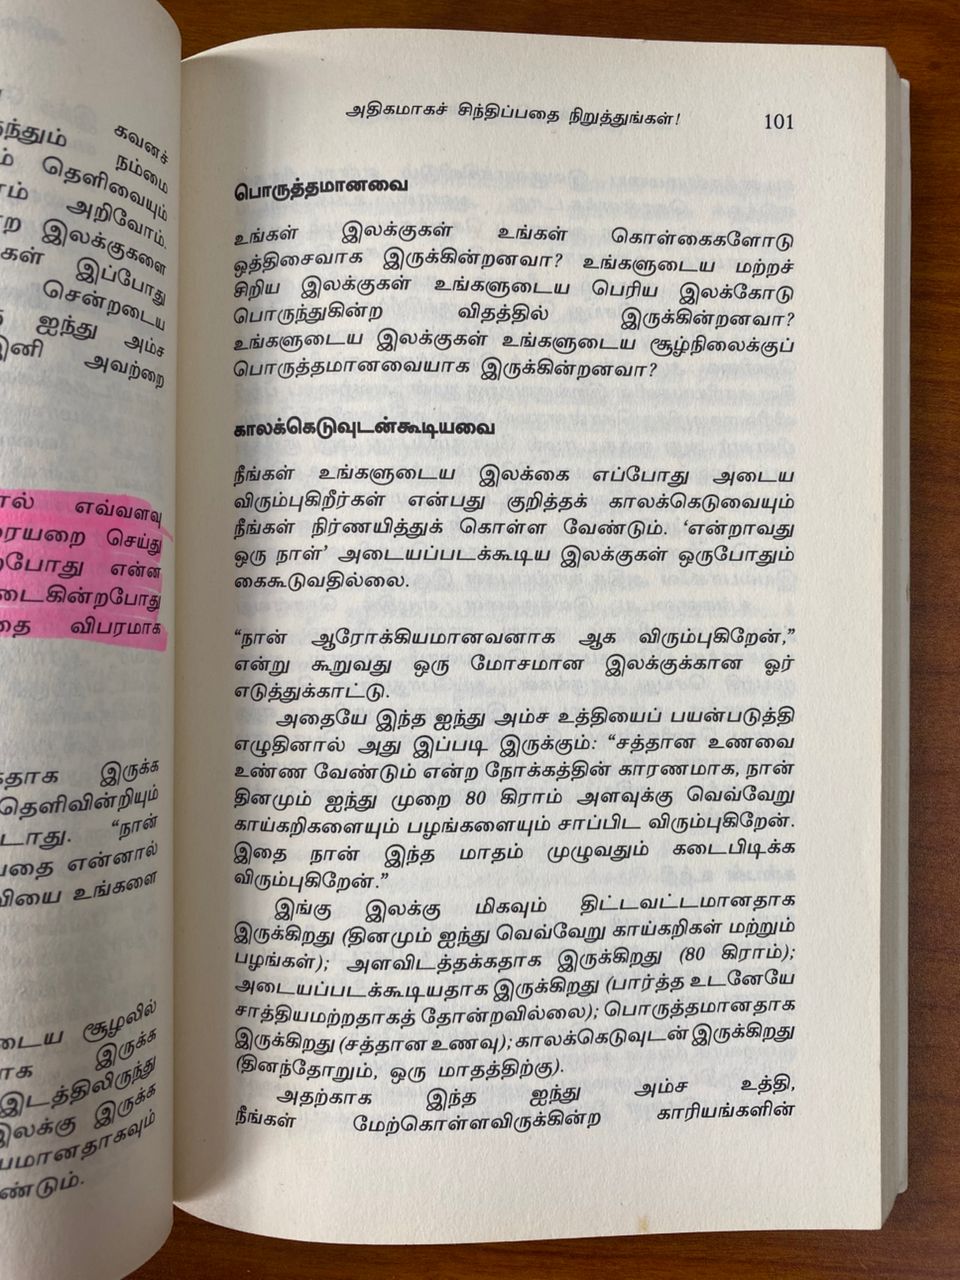 கவனச்
நம்மை
தெளிவையும்
அறிவோம்.
இலக்குகளை
கள் இப்போது
சென்றடைய
ஐந்து அம்ச
இனி அவற்றை
எவ்வளவு
செய்து
என்ன
விபரமாக
இருக்க
தெளிவின்றியும்
"நான்
என்னால்
உங்களை
சூழலில்
இருக்க
இடத்திலிருந்து
இலக்கு இருக்க
அதிகமாகச் சிந்திப்பதை நிறுத்துங்கள்! 101
பொருத்தமானவை
உங்கள் இலக்குகள் உங்கள் கொள்கைகளோடு
ஒத்திசைவாக இருக்கின்றனவா? உங்களுடைய மற்றச்
சிறிய இலக்குகள் உங்களுடைய பெரிய இலக்கோடு
பொருந்துகின்ற விதத்தில் இருக்கின்றனவா?
உங்களுடைய இலக்குகள் உங்களுடைய சூழ்நிலைக்குப்
பொருத்தமானவையாக இருக்கின்றனவா?
காலக்கெடுவுடன்கூடியவை
நீங்கள் உங்களுடைய இலக்கை எப்போது அடைய
விரும்புகிறீர்கள் என்பது குறித்தக் காலக்கெடுவையும்
நீங்கள் நிர்ணயித்துக் கொள்ள வேண்டும். 'என்றாவது
ஒரு நாள்' அடையப்படக்கூடிய இலக்குகள் ஒருபோதும்
கைகூடுவதில்லை.
"நான் ஆரோக்கியமானவனாக ஆக விரும்புகிறேன்,"
என்று கூறுவது ஒரு மோசமான இலக்குக்கான ஓர்
எடுத்துக்காட்டு.
அதையே இந்த ஐந்து அம்ச உத்தியைப் பயன்படுத்தி
எழுதினால் அது இப்படி இருக்கும்: "சத்தான உணவை
உண்ண வேண்டும் என்ற நோக்கத்தின் காரணமாக, நான்
தினமும் ஐந்து முறை 80 கிராம் அளவுக்கு வெவ்வேறு
காய்கறிகளையும் பழங்களையும் சாப்பிட விரும்புகிறேன்.
இதை நான் இந்த மாதம் முழுவதும் கடைபிடிக்க
விரும்புகிறேன்."
இங்கு இலக்கு மிகவும் திட்டவட்டமானதாக
இருக்கிறது (தினமும் ஐந்து வெவ்வேறு காய்கறிகள் மற்றும்
பழங்கள்); அளவிடத்தக்கதாக இருக்கிறது (80 கிராம்);
அடையப்படக்கூடியதாக இருக்கிறது (பார்த்த உடனேயே
சாத்தியமற்றதாகத் தோன்றவில்லை); பொருத்தமானதாக
இருக்கிறது (சத்தான உணவு); காலக்கெடுவுடன் இருக்கிறது
(தினந்தோறும், ஒரு மாதத்திற்கு).
அதற்காக இந்த ஐந்து அம்ச உத்தி,
நீங்கள் மேற்கொள்ளவிருக்கின்ற காரியங்களின்